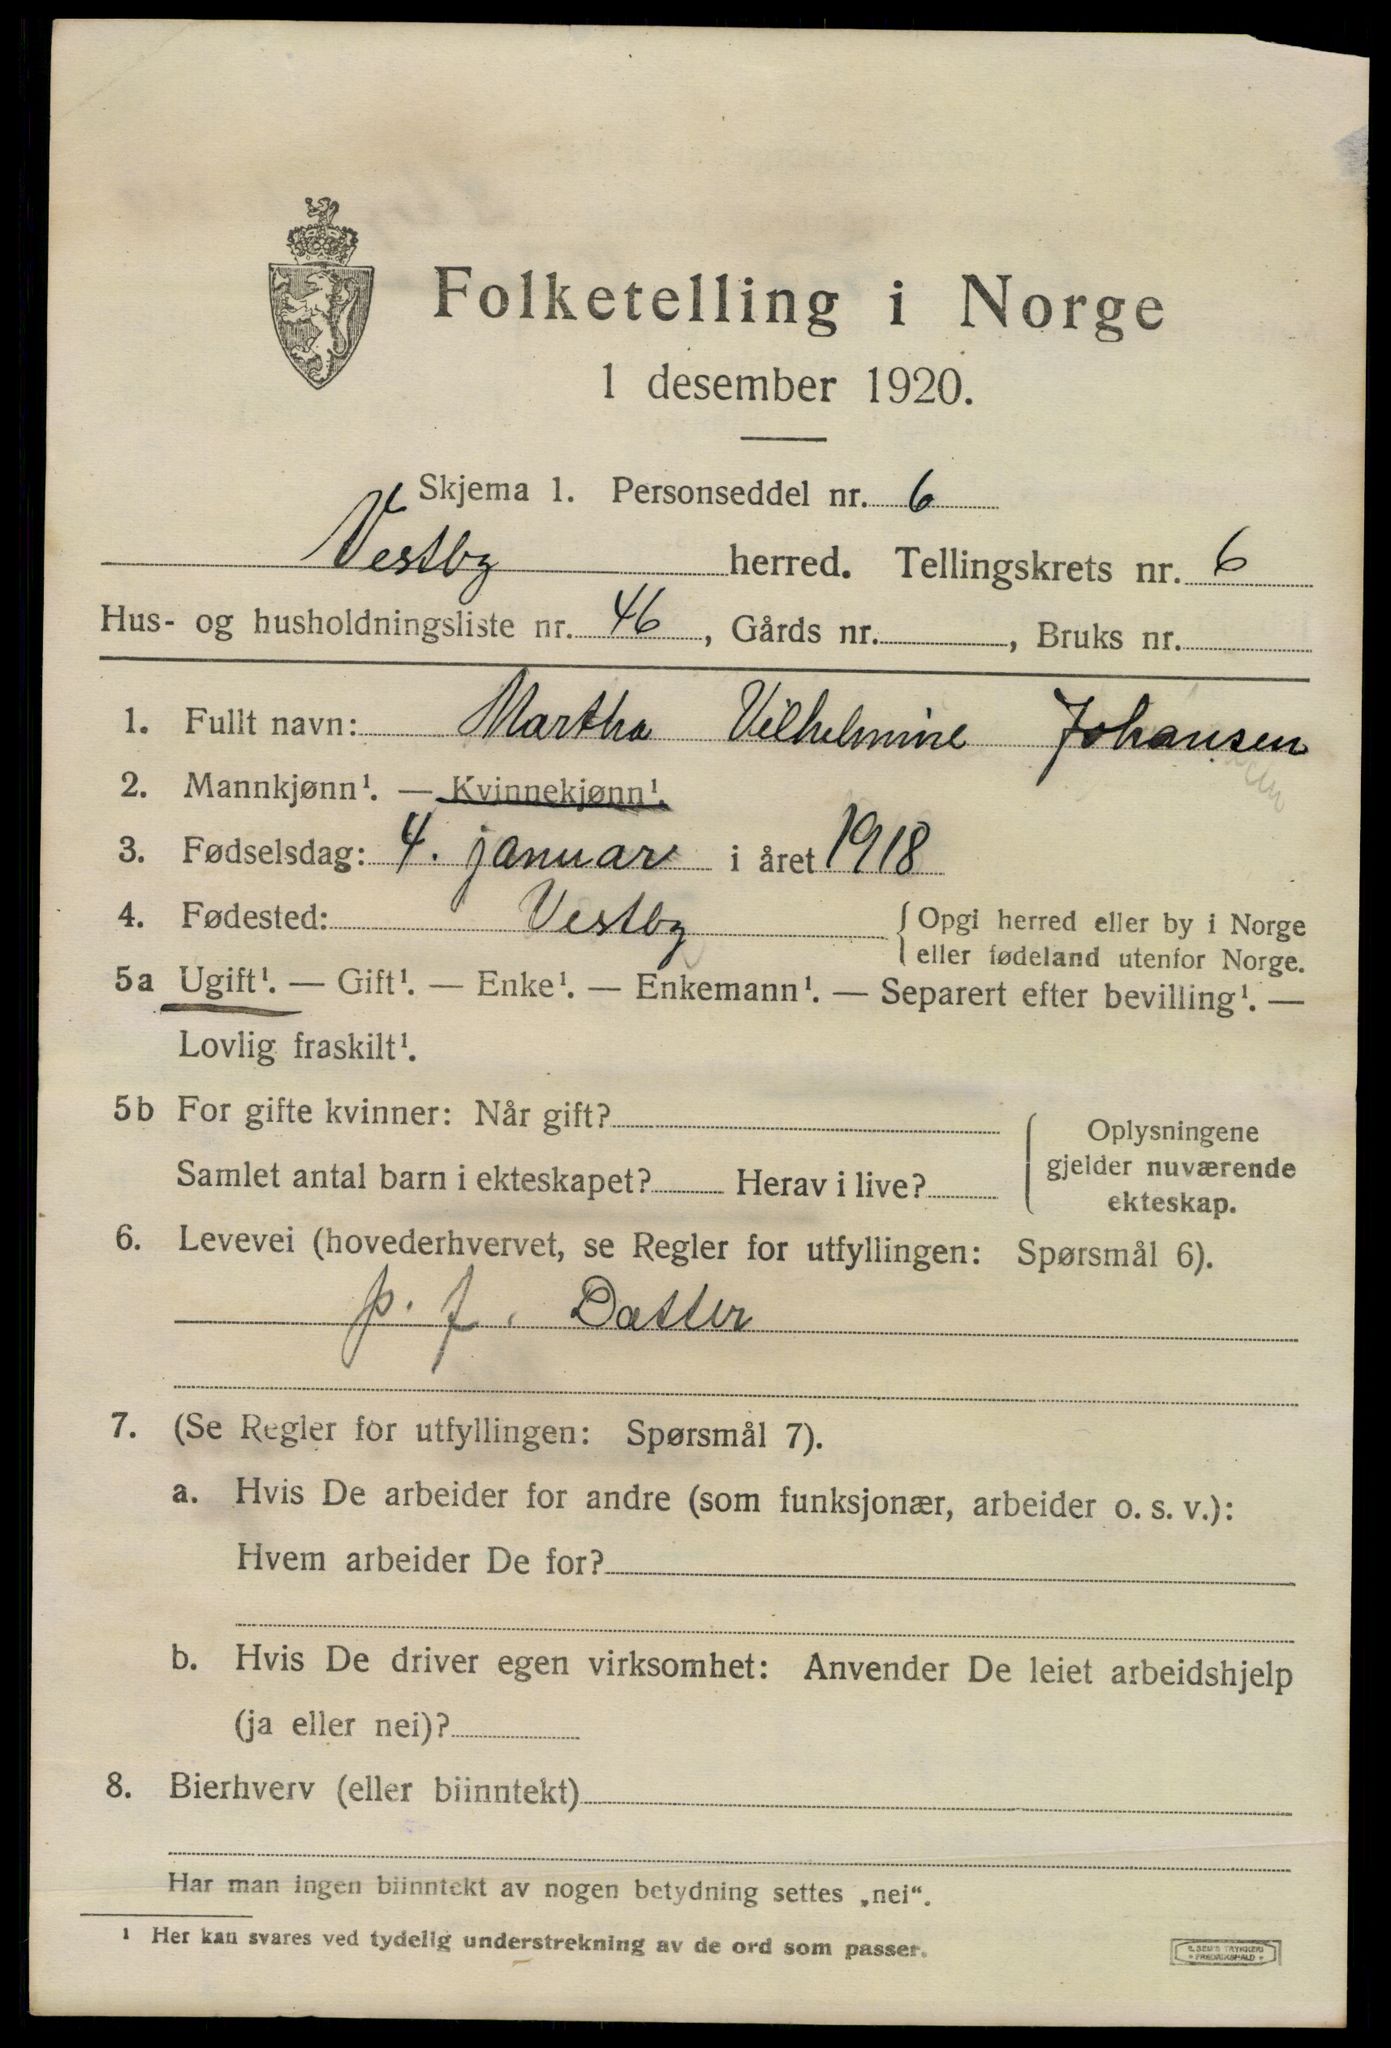 Folketelling i Norge
1 desember 1920.
Skjema 1. Personseddel nr. 6
Vestby herred. Tellingskrets nr. 6
Hus- og husholdningsliste nr. 46, Gårds nr. , Bruks nr.
1. Fullt navn: Martha Vilhelmine Johansen
2. Mannkjønn¹. — Kvinnekjønn¹.
3. Fødselsdag: 4. januar i året 1918
4. Fødested: Vestby { Opgi herred eller by i Norge
eller fødeland utenfor Norge.
5a Ugift¹. — Gift¹. — Enke¹. — Enkemann¹. — Separert efter bevilling¹. —
Lovlig fraskilt¹.
5b For gifte kvinner: Når gift?
Samlet antal barn i ekteskapet? Herav i live?
Oplysningene
gjelder nuværende
ekteskap.
6. Levevei (hovederhvervet, se Regler for utfyllingen: Spørsmål 6).
p. f. Datter
7. (Se Regler for utfyllingen: Spørsmål 7).
a. Hvis De arbeider for andre (som funksjonær, arbeider o. s. v.):
Hvem arbeider De for?
b. Hvis De driver egen virksomhet: Anvender De leiet arbeidshjelp
(ja eller nei)?
8. Bierhverv (eller biinntekt)
Har man ingen biinntekt av nogen betydning settes „nei“.
¹ Her kan svares ved tydelig understrekning av de ord som passer.
E. SEM'S TRYKKERI
FREDRIKSHALD